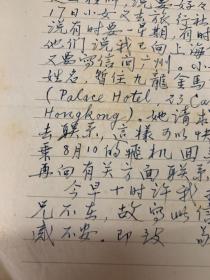 17日小女又去旅行社
说有时要一星期，有时
他们说我已向上海
又要写信向广州。小
姓名，暂住九龍金馬
(Palace Hotel, 23, Ca
Hongkong)。她请
去联系，这样可以快
乘8月10的飛机回
再向有关方面联系
今早十时许我
兄不在，故写此信
感不安。即致